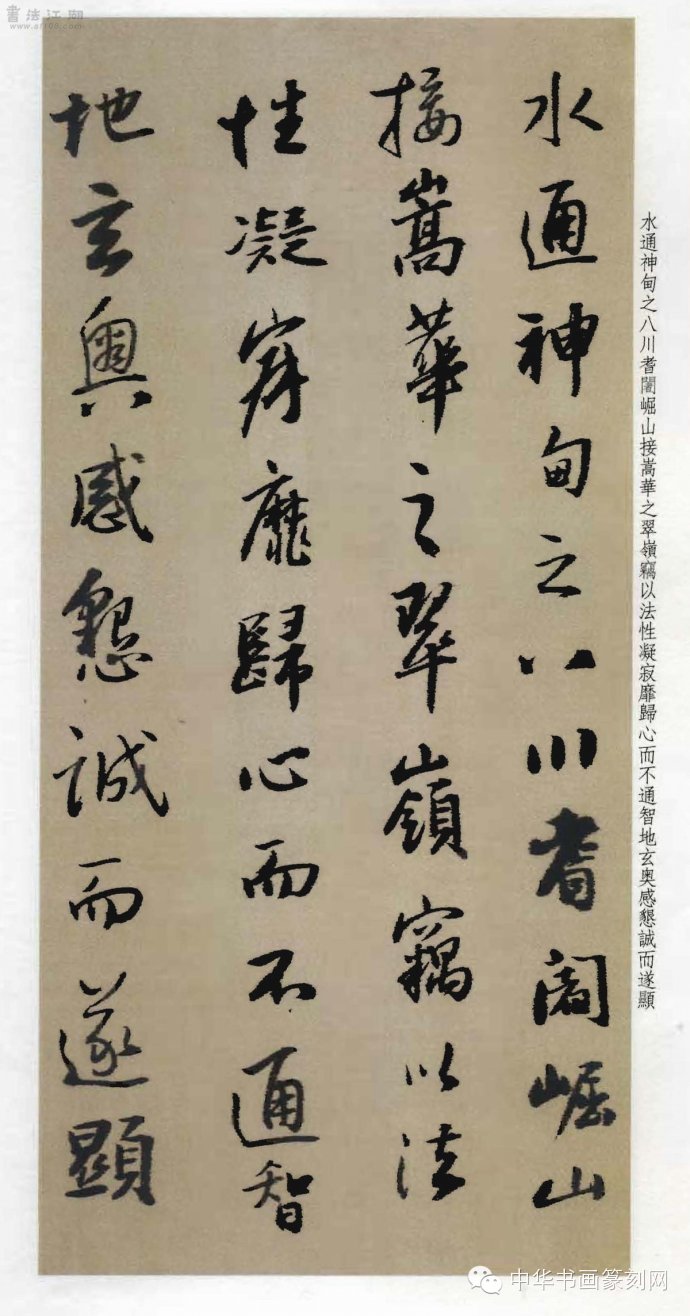 書法江湖
www.sf108.com
水通神甸之八川耆闍崛山
接嵩華之翠嶺竊以法
性凝寂靡歸心而不通智
地玄奧感懇誠而遂顯
水通神甸之八川耆闍崛山接嵩華之翠嶺竊以法性凝寂靡歸心而不通智地玄奥感懇誠而遂顯
中华书画篆刻网